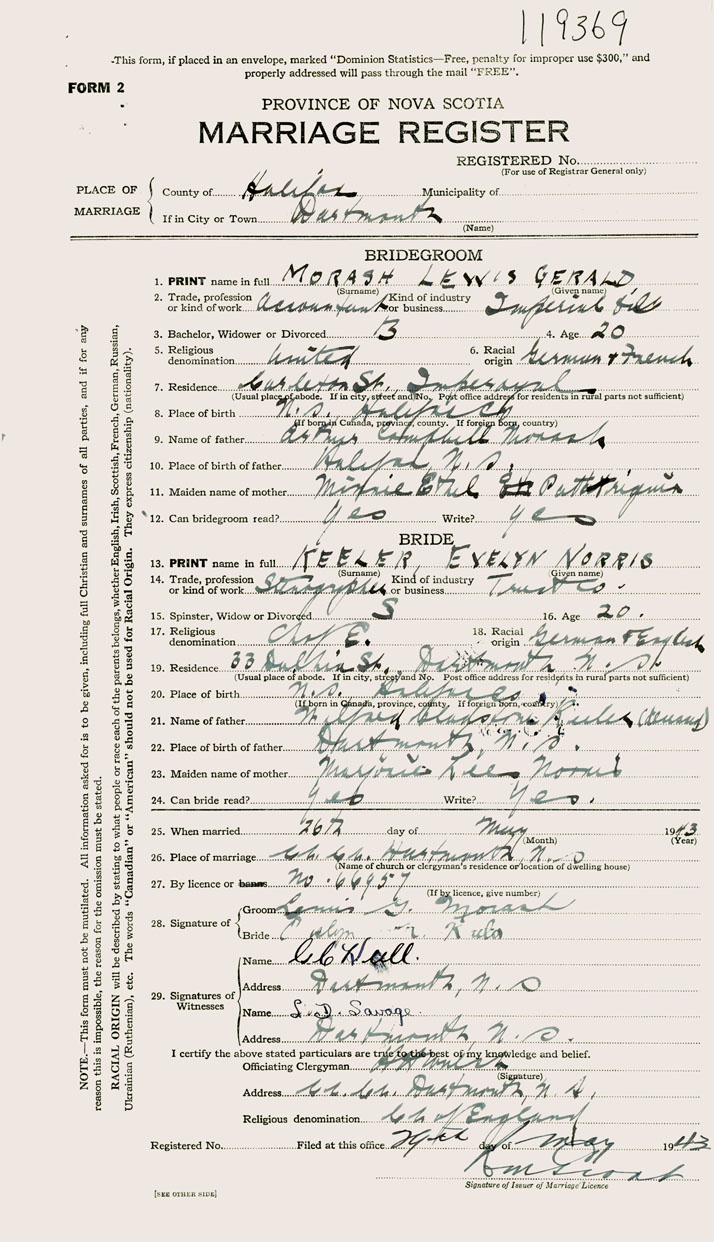 119369
-This form, if placed in an envelope, marked "Dominion Statistics—Free, penalty for improper use $300," and
properly addressed will pass through the mail "FREE".
FORM 2
PROVINCE OF NOVA SCOTIA
MARRIAGE REGISTER
REGISTERED No.
(For use of Registrar General only)
PLACE OF MARRIAGE
County of Halifax Municipality of
If in City or Town Dartmouth
(Name)
BRIDEGROOM
1. PRINT name in full MORASH LEWIS GERALD
(Surname) (Given name)
2. Trade, profession or kind of work Accountant Kind of industry or business Imperial Oil
3. Bachelor, Widower or Divorced B 4. Age 20
5. Religious denomination United 6. Racial origin German & French
7. Residence Carleton St., Imperoyal
(Usual place of abode. If in city, street and No. Post office address for residents in rural parts not sufficient)
8. Place of birth N.S. Halifax Co
(If born in Canada, province, county. If foreign born, country)
9. Name of father Arthur Campbell Morash
10. Place of birth of father Halifax, N.S.
11. Maiden name of mother Minnie Ethel
12. Can bridegroom read? Yes Write? Yes
BRIDE
13. PRINT name in full KEELER, EVELYN NORRIS
(Surname) (Given name)
14. Trade, profession or kind of work Kind of industry or business Trust Co.
15. Spinster, Widow or Divorced S 16. Age 20.
17. Religious denomination Ch of E. 18. Racial origin German & English
19. Residence 33 St., Dartmouth N.S.
(Usual place of abode. If in city, street and No. Post office address for residents in rural parts not sufficient)
20. Place of birth N.S. Halifax Co
(If born in Canada, province, county. If foreign born, country)
21. Name of father Wilfred Gladstone Keeler
22. Place of birth of father Dartmouth, N.S.
23. Maiden name of mother Marjorie Lee Norris
24. Can bride read? Yes Write? Yes.
25. When married 26th day of May 1943
(Month) (Year)
26. Place of marriage Ch. Ch. Dartmouth, N.S
(Name of church or clergyman's residence or location of dwelling house)
27. By licence or banns No. 66957
(If by licence, give number)
28. Signature of
Groom Lewis G. Morash
Bride Evelyn N. Keeler
29. Signatures of Witnesses
Name C C Hall.
Address Dartmouth, N.S
Name L.D. Savage.
Address Dartmouth N.S.
I certify the above stated particulars are true to the best of my knowledge and belief.
Officiating Clergyman
(Signature)
Address Ch. Ch. Dartmouth, N.S.
Religious denomination Ch of England
Registered No. Filed at this office 29th day of May 1943
Signature of Issuer of Marriage Licence
[SEE OTHER SIDE]
NOTE.—This form must not be mutilated. All information asked for is to be given, including full Christian and surnames of all parties, and if for any
reason this is impossible, the reason for the omission must be stated.
RACIAL ORIGIN will be described by stating to what people or race each of the parents belongs, whether English, Irish, Scottish, French, German, Russian,
Ukrainian (Ruthenian), etc. The words "Canadian" or "American" should not be used for Racial Origin. They express citizenship (nationality).